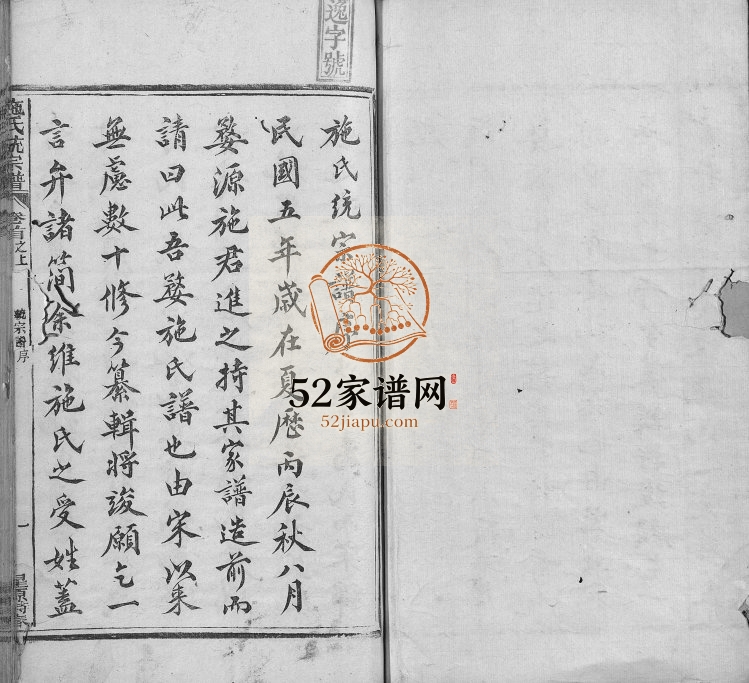 逸字號
施氏統宗譜序
民國五年歲在夏歷丙辰秋八月
婺源施君進之持其家譜造前而
請曰此吾婺施氏譜也由宋以来
無慮數十修今纂輯將竣願乞一
言弁諸簡余維施氏之受姓蓋
施氏統宗譜
卷首之上
統宗譜序
一
52家谱网
52jiapu.com